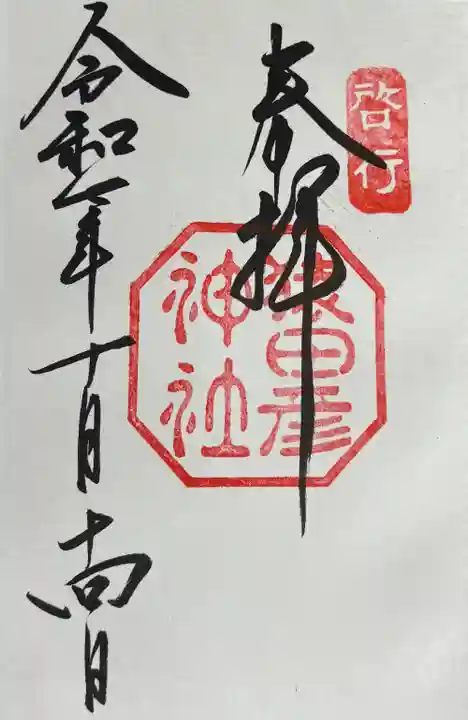 啓行
奉拝
猿田彦
神社
令和 年十月十四日